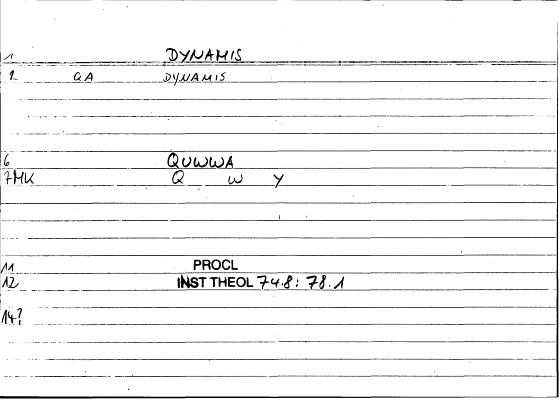 1 DYNAMIS
2 GA DYNAMIS
6 QUWWA
7MK Q W Y
11 PROCL
12 INST THEOL 74.8: 78.1
14?